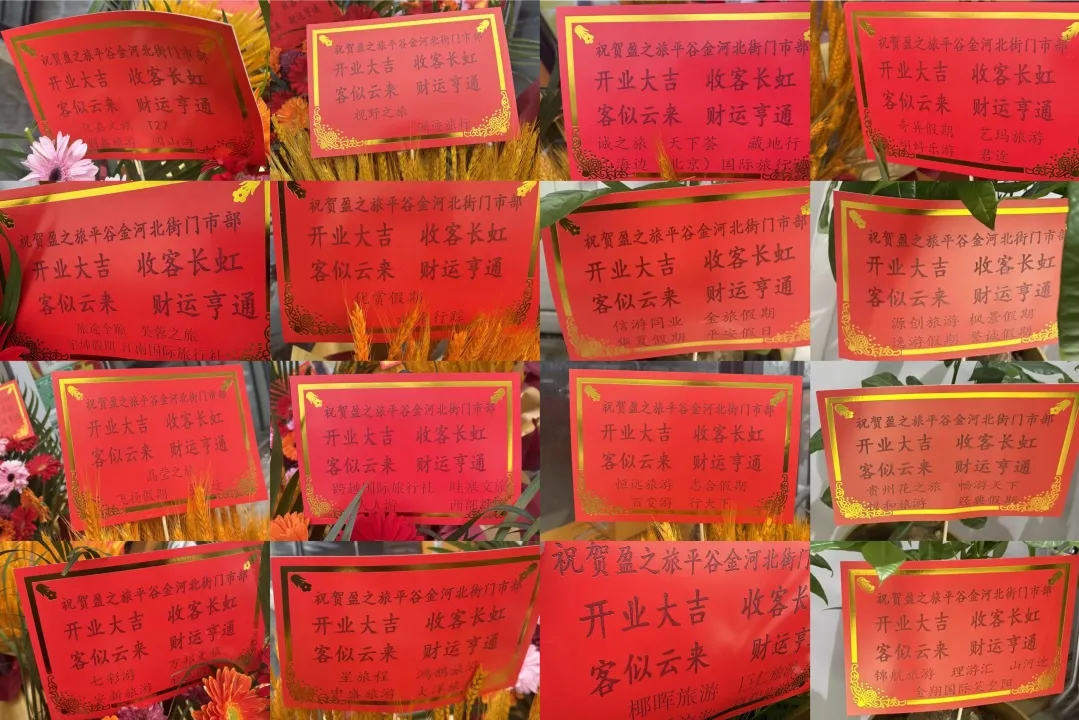 祝贺盈之旅平谷金河北街门市部
开业大吉 收客长虹
客似云来 财运亨通
T27
祝贺盈之旅平谷金河北街门市部
开业大吉 收客长虹
客似云来 财运亨通
视野之旅
祝贺盈之旅平谷金河北街门市部
开业大吉 收客长虹
客似云来 财运亨通
诚之旅 天下荟 藏地行
海边（北京）国际旅行
祝贺盈之旅平谷金河北街门市部
开业大吉 收客长虹
客似云来 财运亨通
奇异假期 艺玛旅游
蚂蚱乐游 君途
祝贺盈之旅平谷金河北街门市部
开业大吉 收客长虹
客似云来 财运亨通
旅途全顺 芙蓉之旅
江南国际旅行社
祝贺盈之旅平谷金河北街门市部
开业大吉 收客长虹
客似云来 财运亨通
优赏假期
行踪
祝贺盈之旅平谷金河北街门市部
开业大吉 收客长虹
客似云来 财运亨通
信游同业 全旅假期
华夏假期 平安假日
祝贺盈之旅平谷金河北街门市部
开业大吉 收客长虹
客似云来 财运亨通
源创旅游 枫景假期
逸游假期 挚诚假期
祝贺盈之旅平谷金河北街门市部
开业大吉 收客长虹
客似云来 财运亨通
晶莹之旅
飞扬假期
祝贺盈之旅平谷金河北街门市部
开业大吉 收客长虹
客似云来 财运亨通
跨越国际旅行社 哇塞文旅
祝贺盈之旅平谷金河北街门市部
开业大吉 收客长虹
客似云来 财运亨通
恒远旅游 志合假期
百变游 行天下
祝贺盈之旅平谷金河北街门市部
开业大吉 收客长虹
客似云来 财运亨通
贵州花之旅 畅游天下
旅游 经典假期
祝贺盈之旅平谷金河北街门市部
开业大吉 收客长虹
客似云来 财运亨通
七彩游 万邦文旅
新旅游
祝贺盈之旅平谷金河北街门市部
开业大吉 收客长虹
客似云来 财运亨通
星旅程 鸿鹄旅游
中盛旅游
祝贺盈之旅平谷金河北街门
开业大吉 收客长
客似云来 财运亨
椰晖旅游
祝贺盈之旅平谷金河北街门市部
开业大吉 收客长虹
客似云来 财运亨通
锦航旅游 理游汇 山河途
金翔国际笑夕阳